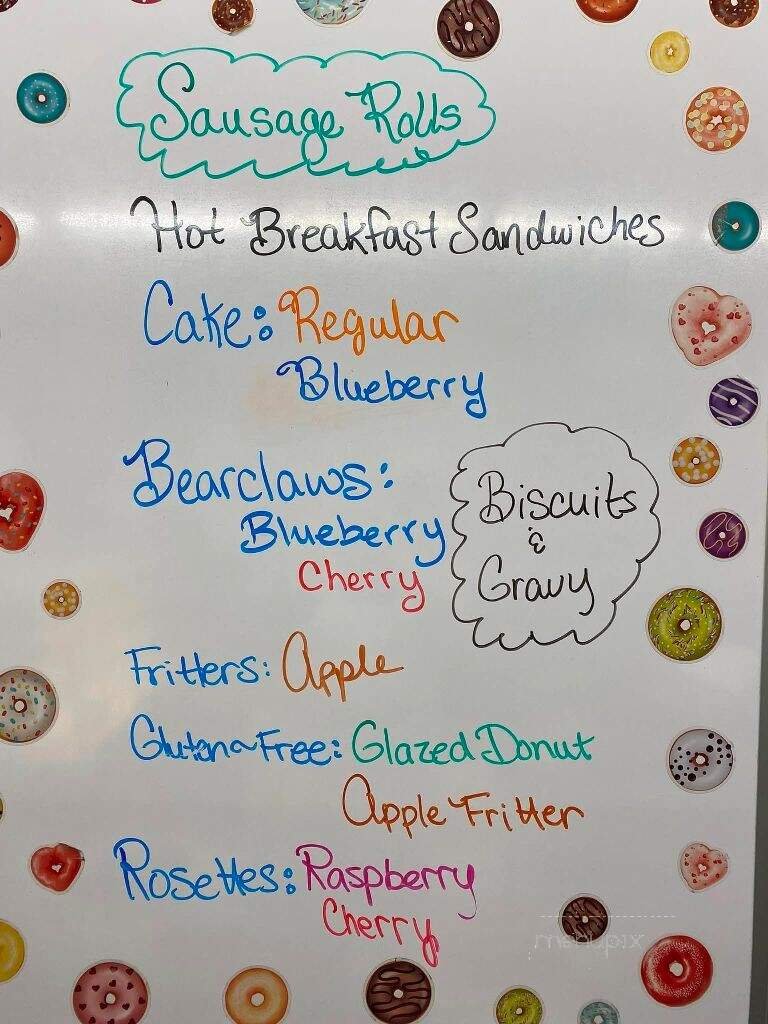 Sausage Rolls
Hot Breakfast Sandwiches
Cake: Regular
Blueberry
Bearclaws:
Blueberry
Cherry
Biscuits
&
Gravy
Fritters: Apple
Gluten~Free: Glazed Donut
Apple Fritter
Rosettes: Raspberry
Cherry
menupix